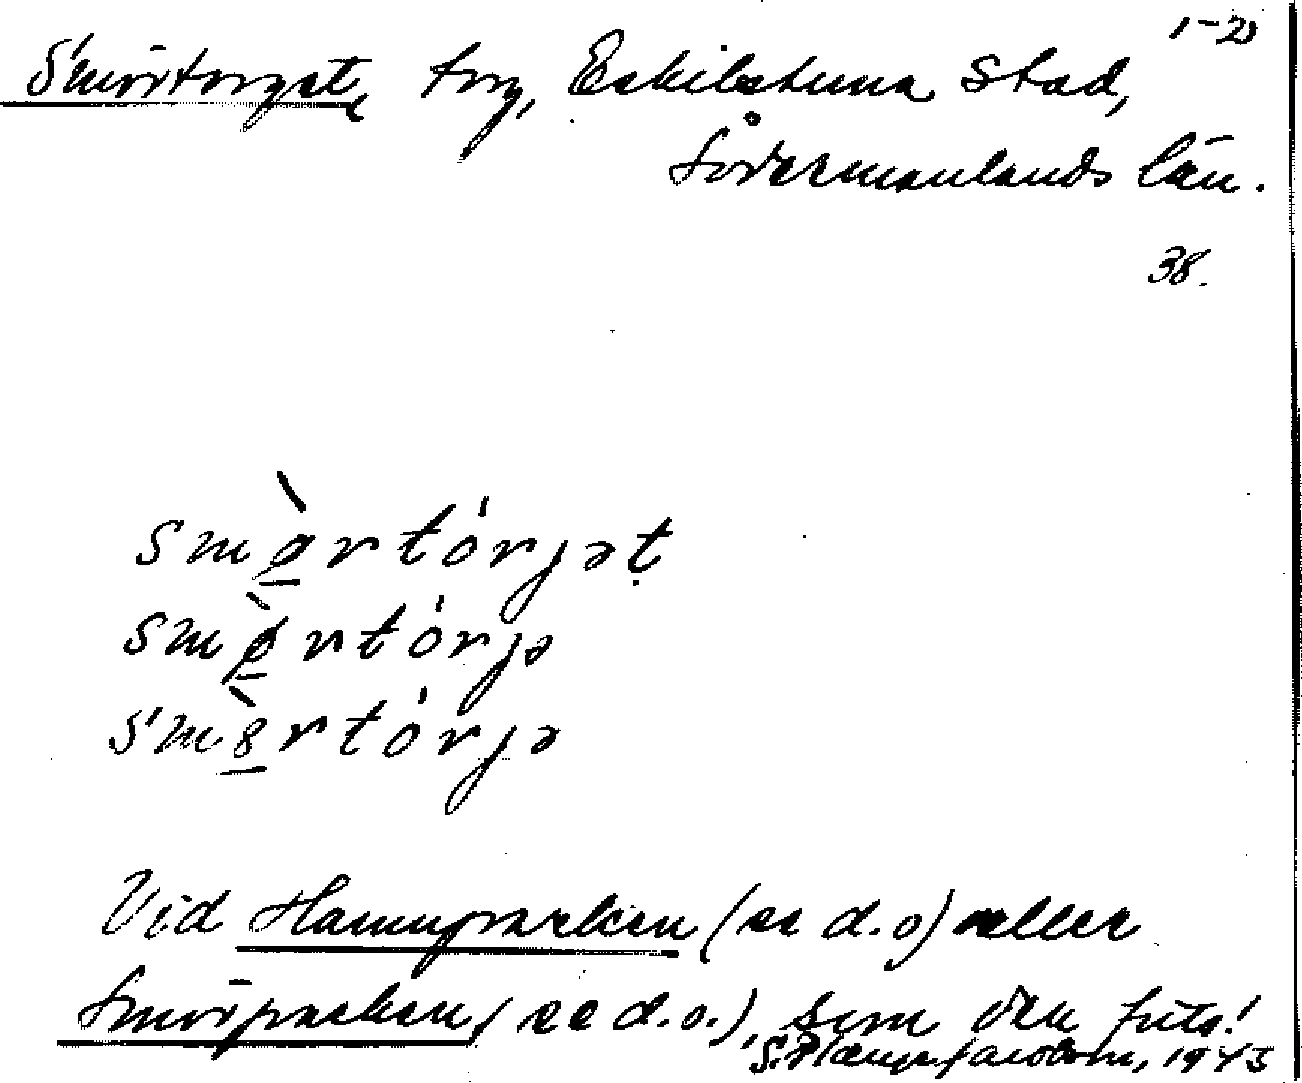 1-2)
Smörtorget, torg, Eskilstuna stad,
Södermanlands län.
38.
smø̀rtórjət
smø̀rtórjə
smö̀rtórjə
Vid Hamnparken (se d.o) eller
Smörparken (se d.o.), som den
1943